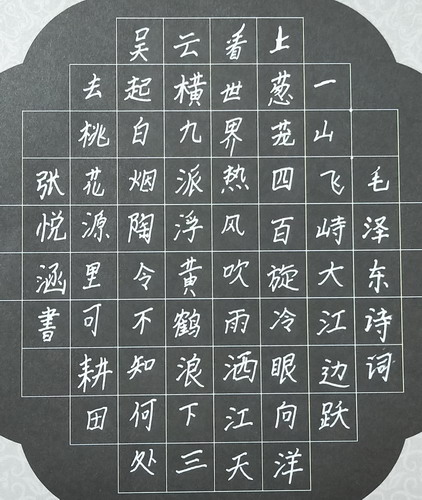 毛泽东诗词
一山飞峙大江边跃
上葱茏四百旋冷眼向洋
看世界热风吹雨洒江天
云横九派浮黄鹤浪下三
吴起白烟陶令不知何处
去桃花源里可耕田
张悦涵書